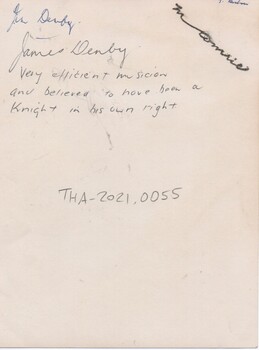 Denby.
James Denby
Very efficient musician
and believed to have been a
Knight in his own right
THA-2021.0055